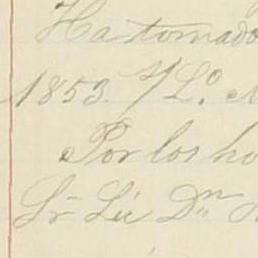 Ha tomado
1853. S/Lo.
Por los ho
Sr Lic Dn